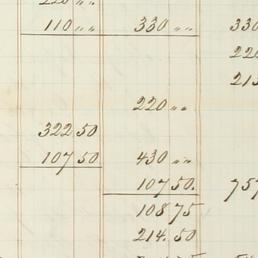 110 „ „ 330 „ „ 330
220 „ „
322 50
107 50 430 „ „
107 50. 757
108 75
214. 50